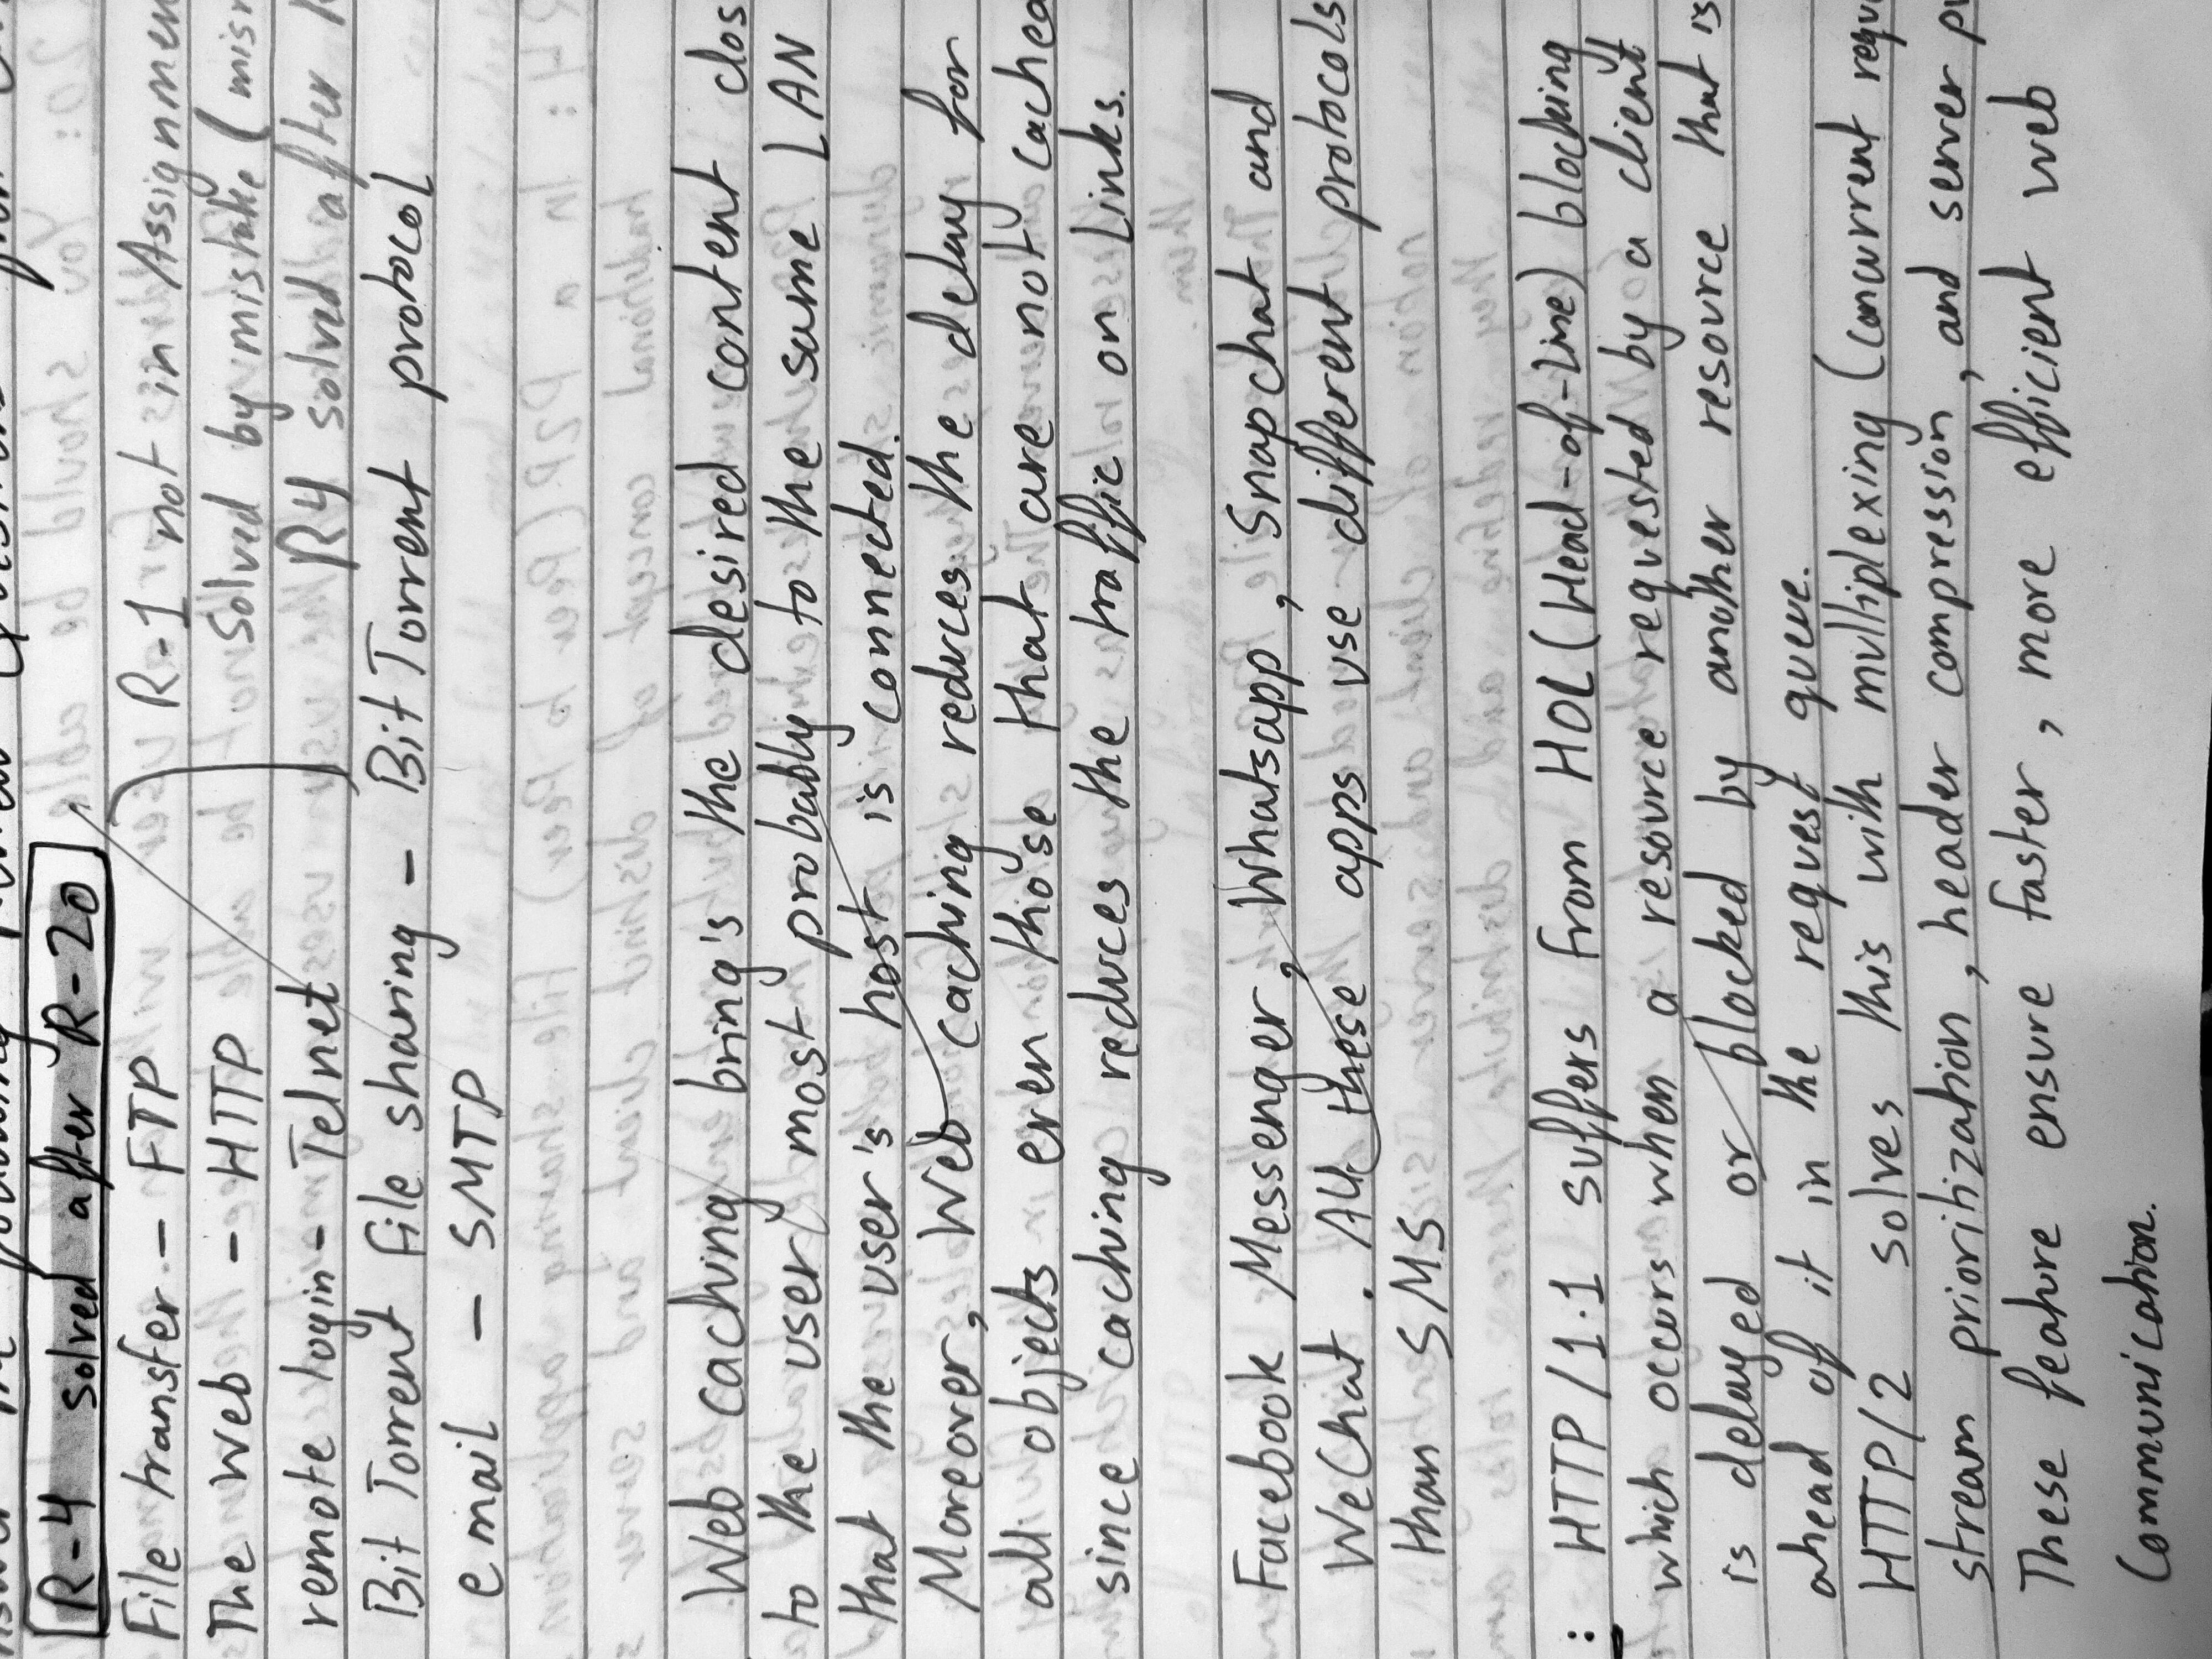 R-4 solved after R-20
File transfer - FTP R-1 not in Assignmen
The Web - HTTP Solved by mistake (mis
remote login - Telnet R4 solved after
Bit Torrent file sharing - Bit Torrent protocol
email - SMTP
Web caching bring's the desired content clos
to the user most probably to the same LAN
that the user's host is connected.
Moreover, Web caching reduces the delay for
all objects even those that are not cached
since caching reduces the traffic on links.
Facebook Messenger, Whatsapp, Snapchat and
WeChat. All these apps use different protocols
than SMS
: HTTP/1.1 suffers from HOL (Head-of-Line) blocking
which occurs when a resource requested by a client
is delayed or blocked by another resource that is
ahead of it in the request queue.
HTTP/2 solves this with multiplexing (concurrent requ
stream prioritization, header compression, and server pu
These feature ensure faster, more efficient web
Communication.